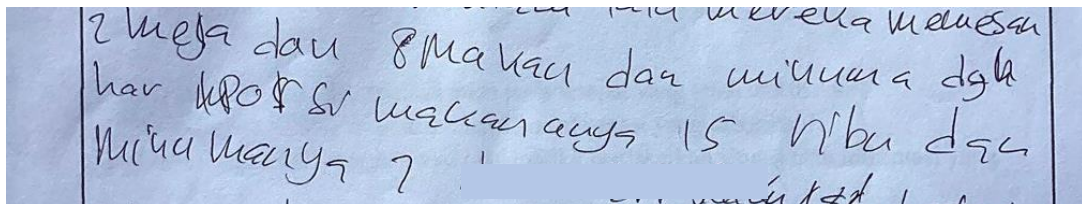 mereka memesan
2 meja dan 8 makan dan minuma dgn
har porsi makananya 15 ribu dan
minumanya 7